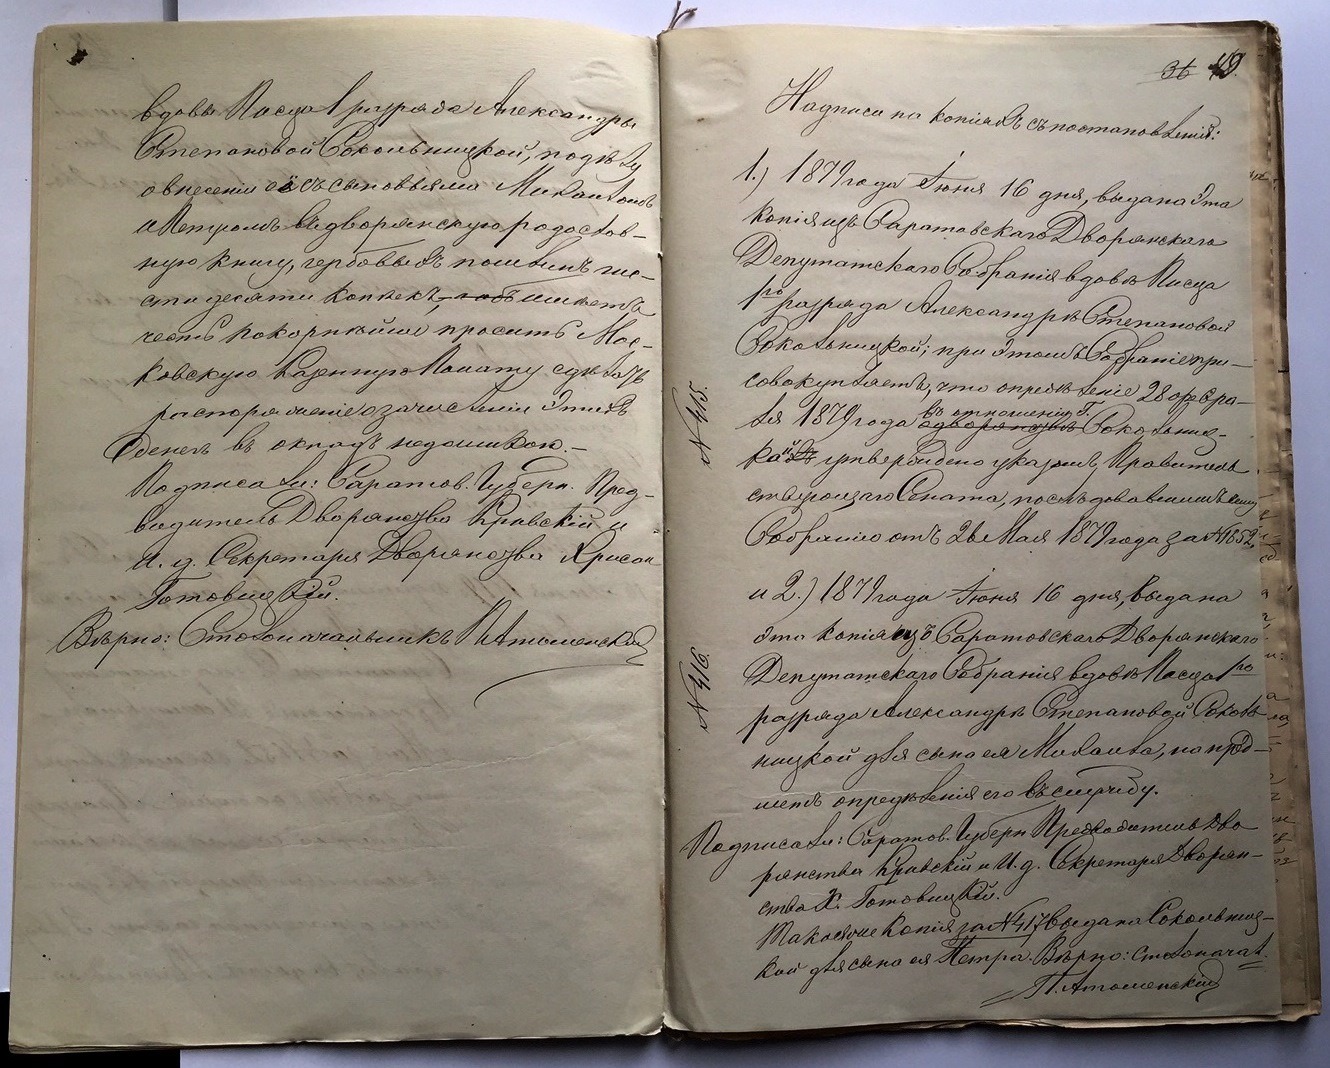 вдовы Писца 1 разряда Александры
Степановой Сокольницкой, по дѣлу
о внесеніи её съ сыновьями Михаиломъ
и Петромъ въ дворянскую родослов-
ную книгу, гербовыхъ пошлинъ ше-
сти десяти копѣекъ, имѣетъ
честь покорнѣйше просить Мос-
ковскую Казенную Палату сдѣлать
распоряженіе о зачисленіи этихъ
денегъ въ окладъ недоимкою.-
Подписали: Саратов. Губерн. Пред-
водитель Дворянства Кривскій и
И. д. Секретаря Дворянства Хрисан
Готовицкій.
Вѣрно: Столоначальникъ П. Атоменскій
36 49.
Надписи на копіяхъ съ постановленій:
1.) 1879 года Іюня 16 дня, выдана эта
копія изъ Саратовскаго Дворянскаго
Депутатскаго Собранія вдовѣ Писца
1го разряда Александрѣ Степановой
Сокольницкой; при этомъ Собраніе при-
совокупляетъ, что опредѣленіе 28 февра-
ля 1879 года въ отношеніи г. Сокольниц-
кой утверждено указомъ Правитель-
ствующаго Сената, послѣдовавшимъ сему
Собранію отъ 2 Мая 1879 года за № 1652,
№ 415.
и 2.) 1879 года Іюня 16 дня, выдана
эта копія изъ Саратовскаго Дворянскаго
Депутатскаго Собранія вдовѣ Писца 1го
разряда Александрѣ Степановой Соколь-
ницкой для сына ея Михаила, на пред-
метъ опредѣленія его въ службу.
№ 416.
Подписали: Саратов. Губерн Предводитель Дво
рянства Кривскій и И. д. Секретаря Дворян-
ства Х. Готовицкій.
Таковая же Копія за № 417 выдана Сокольниц-
кой для сына ея Петра. Вѣрно: Столоначал.
П. Атоменскій